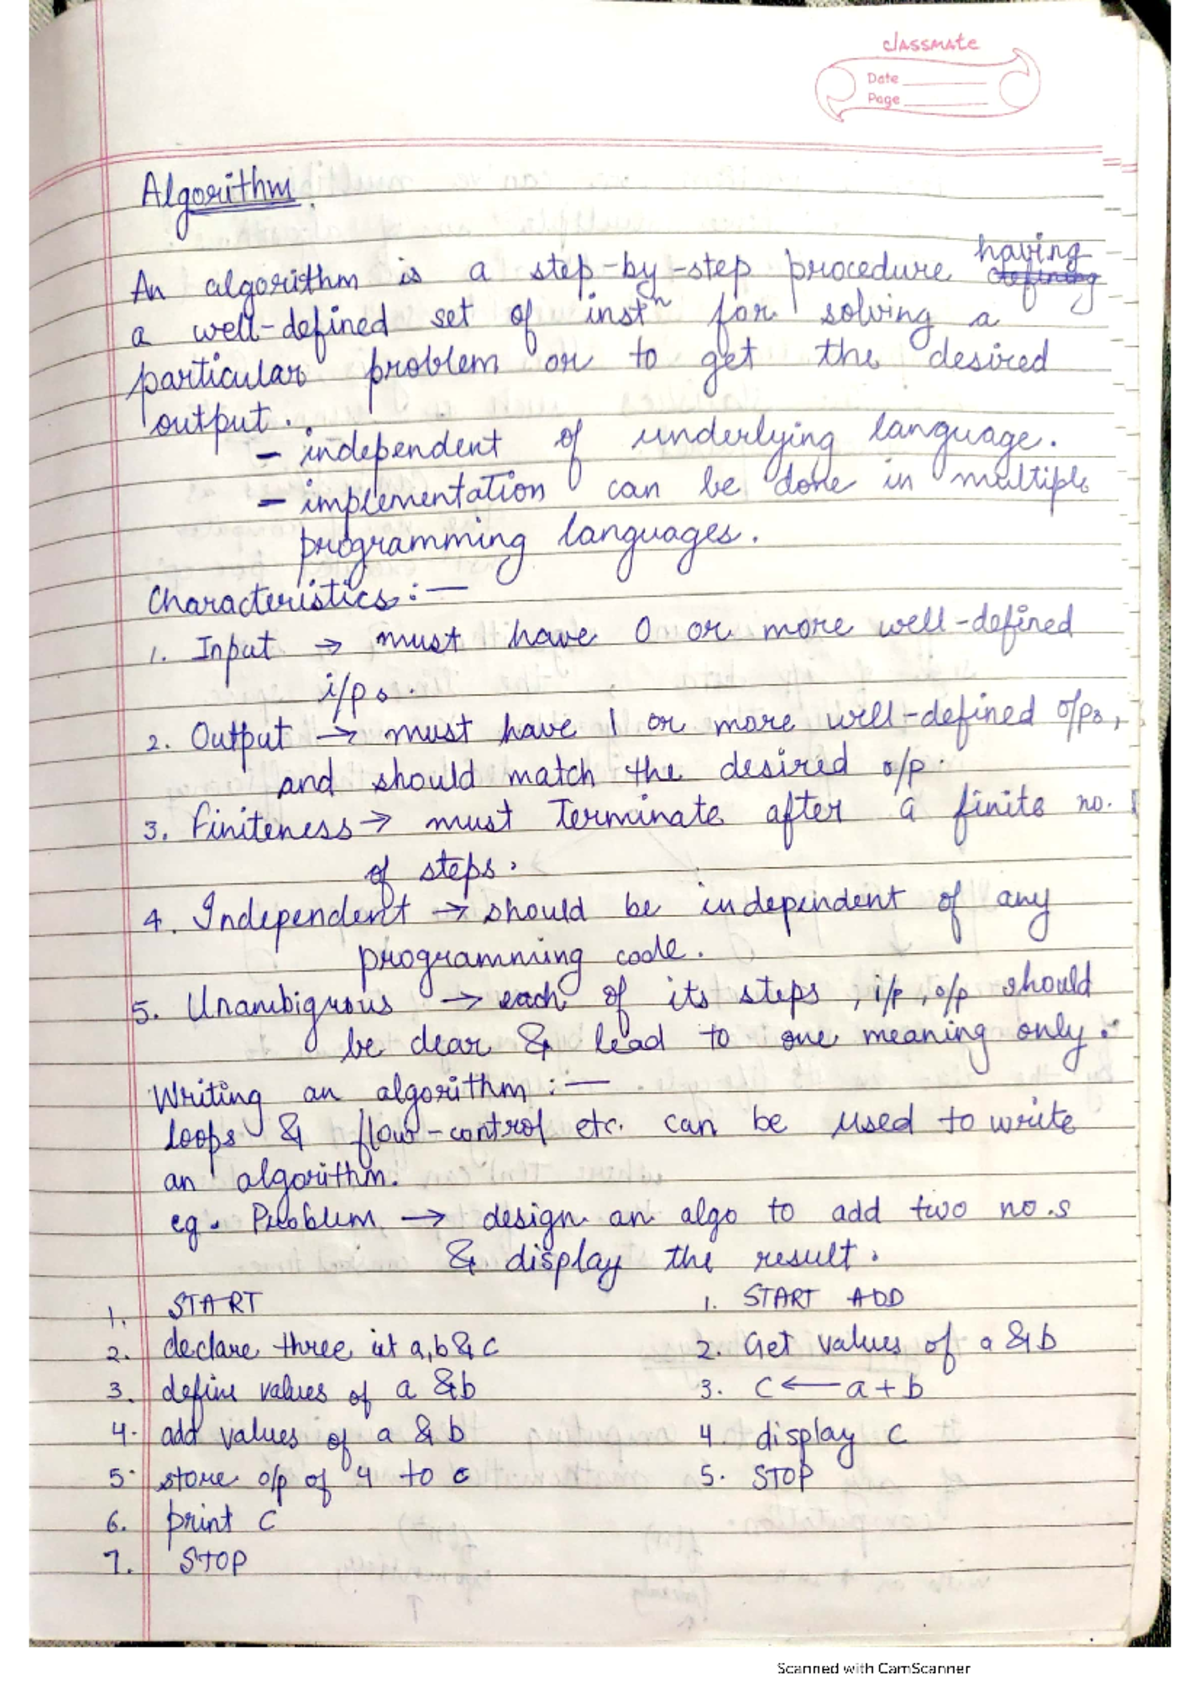 classmate
Date
Page
Algorithm
An algorithm is a step-by-step procedure having defining
a well-defined set of instⁿ for solving a
particular problem or to get the desired
output.
- independent of underlying language.
- implementation can be done in multiple
programming languages.
Characteristics:—
1. Input → must have 0 or more well-defined
i/ps.
2. Output → must have 1 or more well-defined o/ps,
and should match the desired o/p.
3. Finiteness → must Terminate after a finite no.
of steps.
4. Independent → should be independent of any
programming code.
5. Unambigrous → each of its steps, i/p, o/p should
be clear & lead to one meaning only.
Writing an algorithm:—
loops & flow-control etc. can be used to write
an algorithm.
eg. Problem → design an algo to add two no.s
& display the result.
1. START
2. declare three int a, b & c
3. define values of a & b
4. add values of a & b
5. store o/p of 4 to c
6. print c
7. STOP
1. START ADD
2. Get values of a & b
3. C ← a + b
4. display C
5. STOP
Scanned with CamScanner